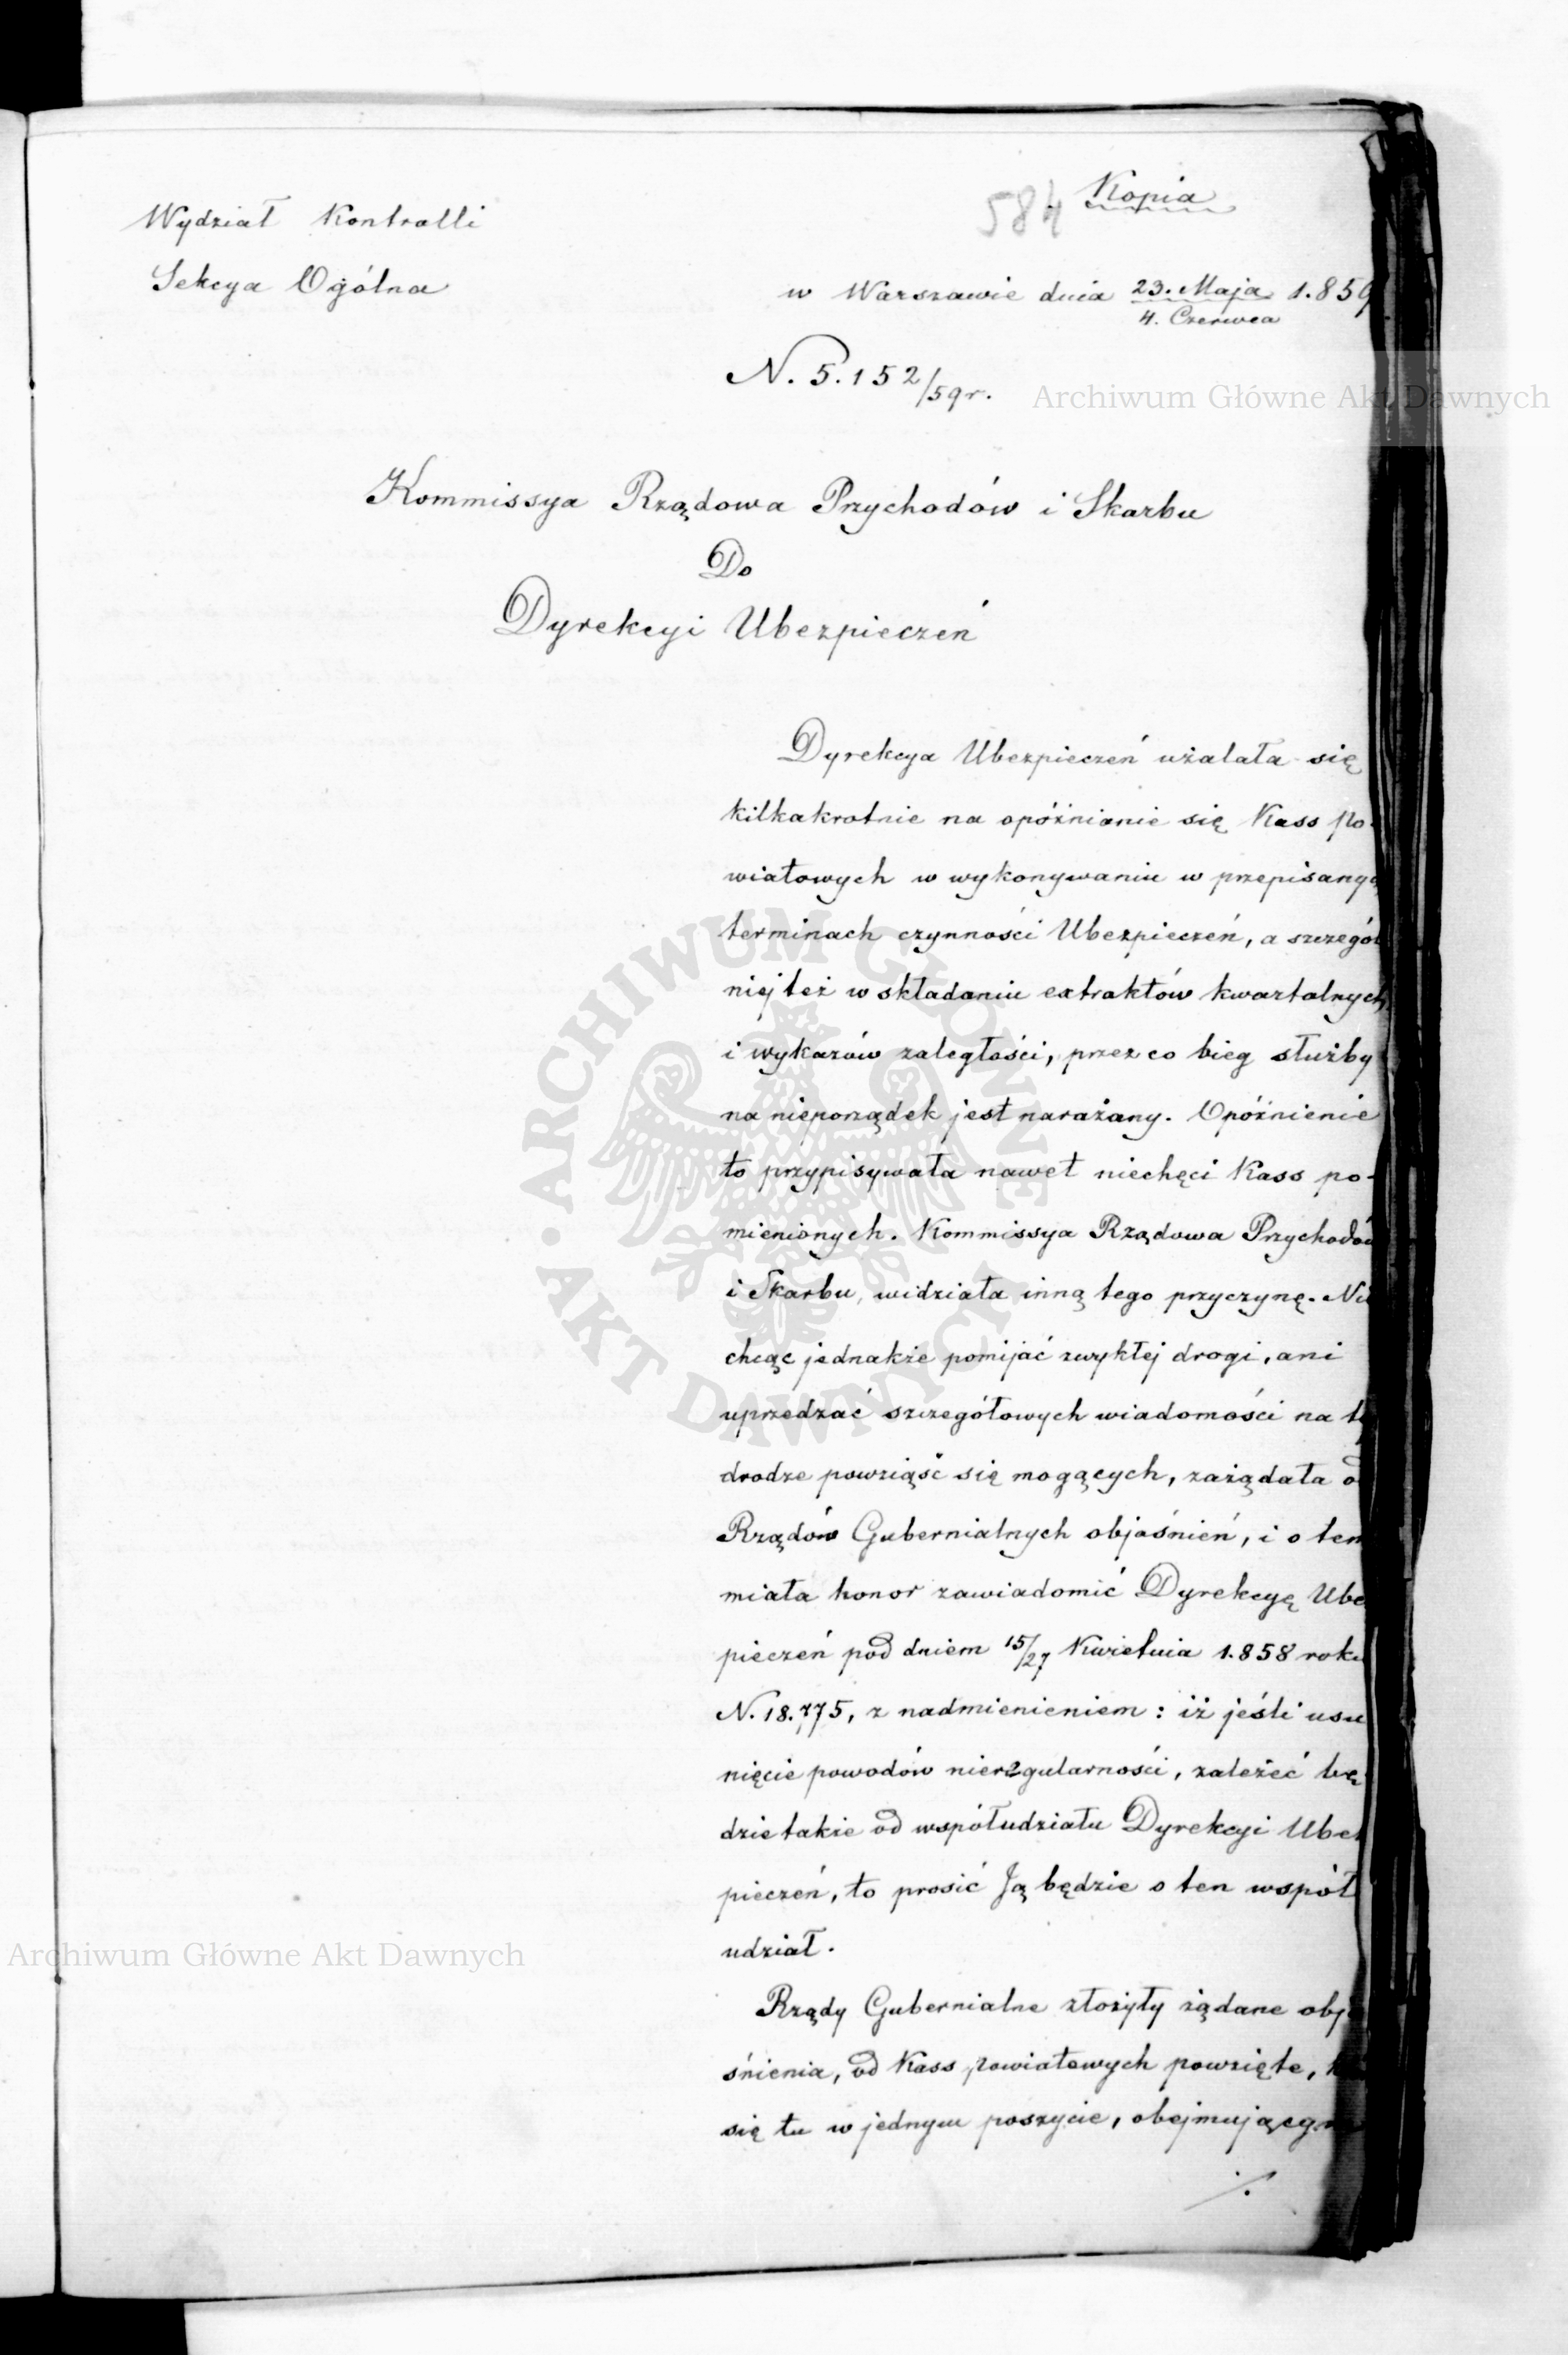 584 Kopia
Wydział Kontrolli
Sekcya Ogólna
w Warszawie dnia 23. Maja 1.859
4. Czerwca
N. 5.152/59r.
Archiwum Główne Akt Dawnych
Kommissya Rządowa Przychodów i Skarbu
Do
Dyrekcyi Ubezpieczeń
Dyrekcya Ubezpieczeń użalała się
kilkakrotnie na opóźnianie się Kass po-
wiatowych w wykonywaniu w przepisanyc
terminach czynności Ubezpieczeń, a szczegól
niej też w składaniu extraktów kwartalnych
i wykazów zaległości, przez co bieg służby
na nieporządek jest narażany. Opóźnienie
to przypisywała nawet niechęci Kass po-
mienionych. Kommissya Rządowa Przychodów
i Skarbu, widziała inną tego przyczynę. Nie
chcąc jednakże pomijać zwykłej drogi, ani
uprzedzać szczegółowych wiadomości na tej
drodze powziąść się mogących, zażądała od
Rządów Gubernialnych objaśnień, i o tem
miała honor zawiadomić Dyrekcyę Ube
pieczeń pod dniem 15/27 Kwietnia 1.858 roku
N. 18.775, z nadmienieniem: iż jeśli usu
nięcie powodów nieregularności, zależeć bę-
dzie takie od współudziału Dyrekcyi Ubez
pieczeń, to prosić Ją będzie o ten współ
udział.
Archiwum Główne Akt Dawnych
Rządy Gubernialne złożyły żądane obj
śnienia, od Kass powiatowych powzięte,
się tu w jednym poszycie, obejmującym
./.
ARCHIWUM GŁÓWNE • AKT DAWNYCH •